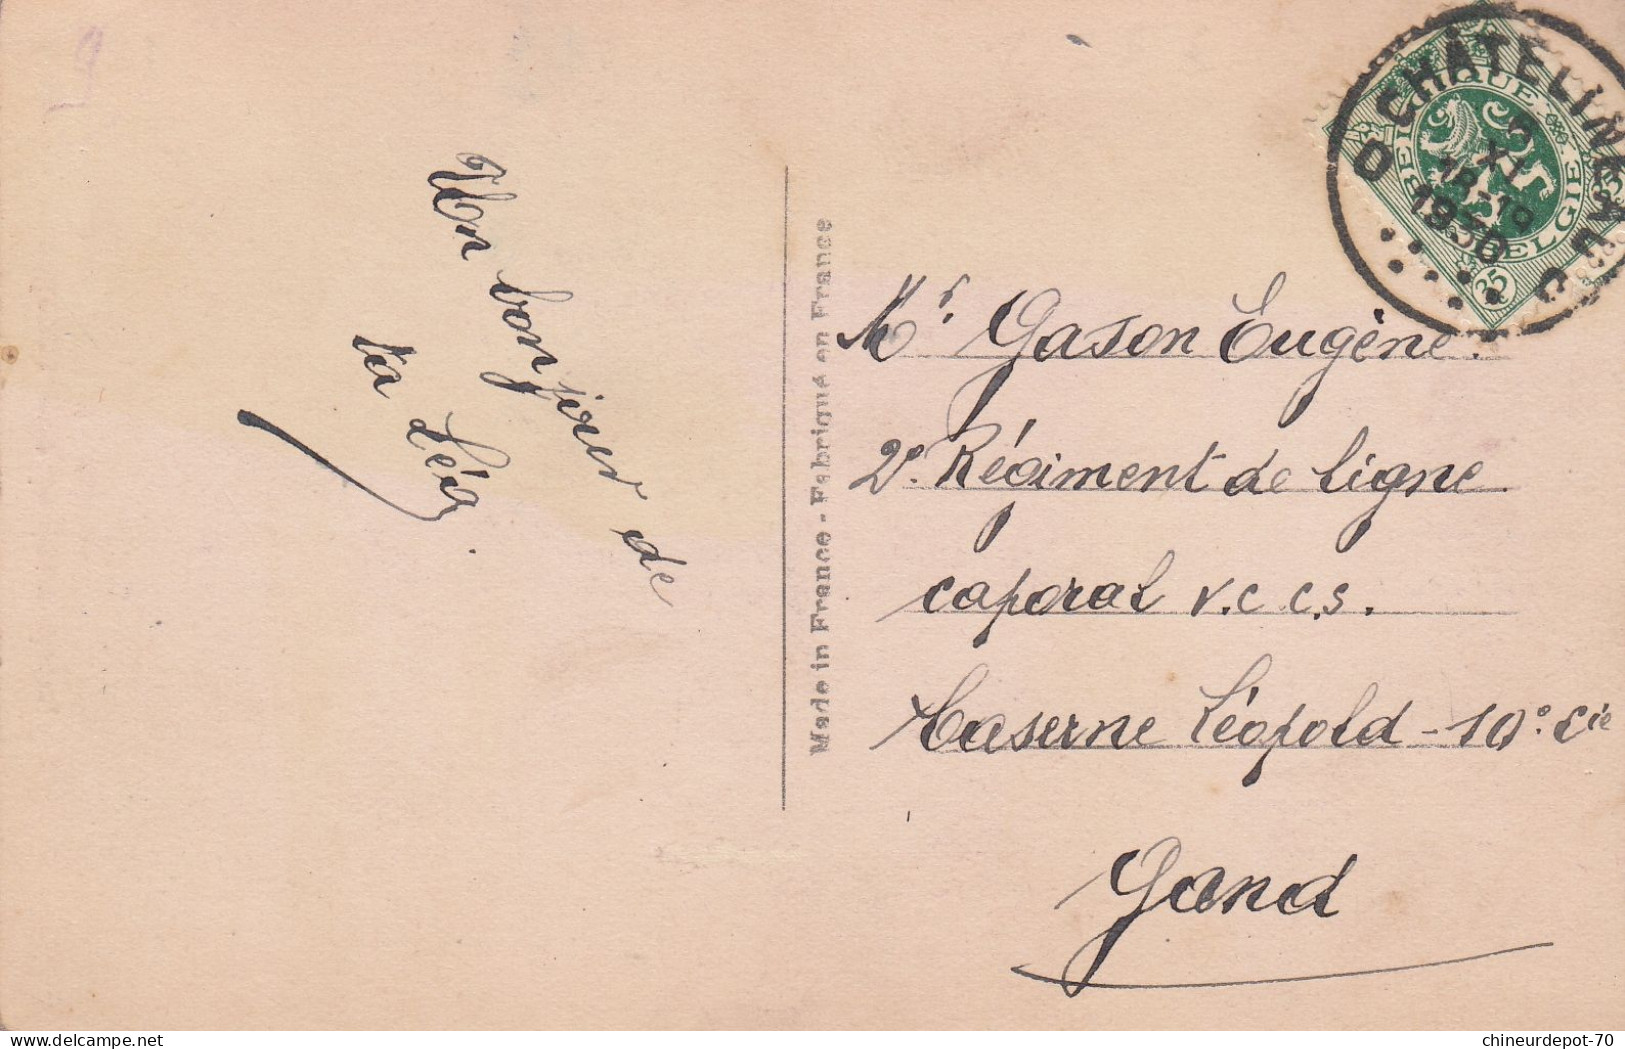 Un bonjour de
ta Léa.
Made in France - Fabriqué en France
CHÂTELINEAU
D D
2
XI
18-19
1930
BELGIQUE
BELGIE
35
Mr. Gason Eugène.
2e. Régiment de ligne
caporal v.c c.s.
Caserne Léopold - 10e Cie
Gand
delcampe.net
chineurdepot-70